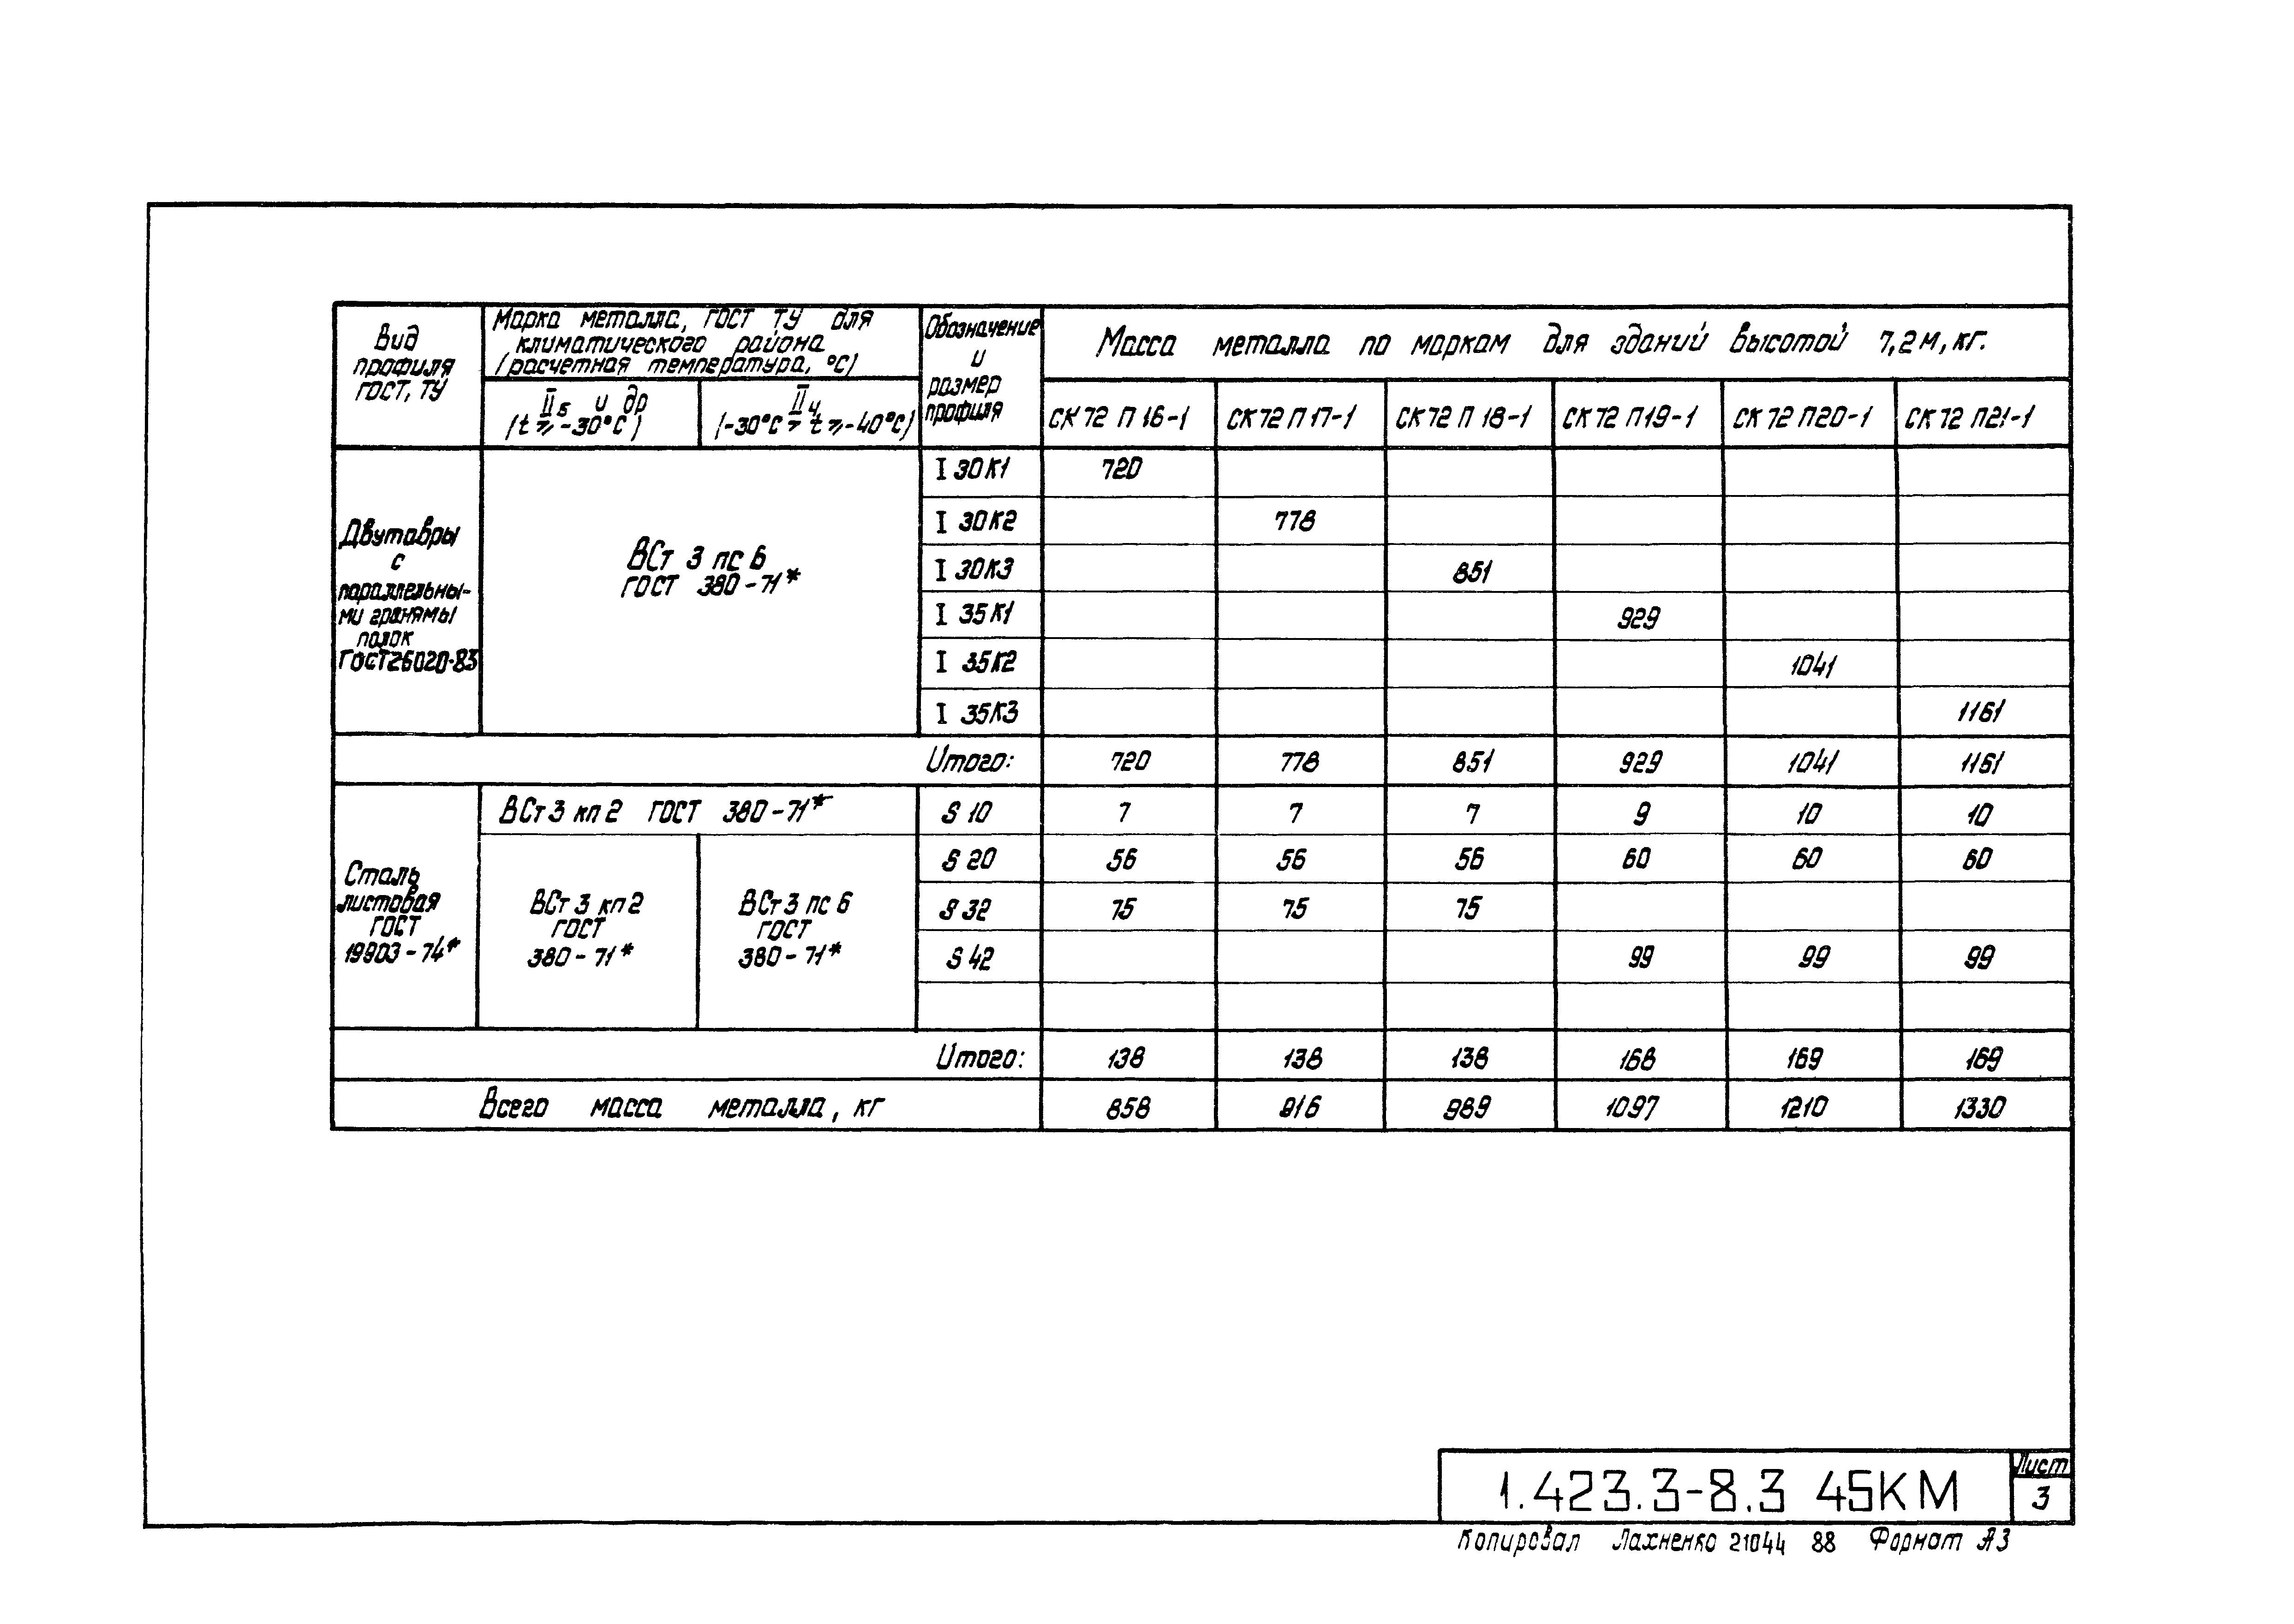 Вид профиля ГОСТ, ТУ
Марка металла, ГОСТ ТУ для климатического района (расчетная температура, °С)
Обозначение и размер профиля
Масса металла по маркам для зданий высотой 7,2 м, кг.
IIs и др (t ⩾ -30°С)
II4 (-30°С > t ⩾ -40°С)
СК 72 П 16-1
СК 72 П 17-1
СК 72 П 18-1
СК 72 П19-1
СК 72 П20-1
СК 72 П21-1
Двутавры
с
параллельны-
ми гранямы
полок
ГОСТ26020-83
ВСт 3 пс 6
ГОСТ 380-71*
I 30К1 720
I 30К2 778
I 30К3 851
I 35К1 929
I 35К2 1041
I 35К3 1161
Итого: 720 778 851 929 1041 1161
Сталь
листовая
ГОСТ
19903-74*
ВСт 3 кп 2 ГОСТ 380-71*
S 10 7 7 7 9 10 10
ВСт 3 кп 2
ГОСТ
380-71*
ВСт 3 пс 6
ГОСТ
380-71*
S 20 56 56 56 60 60 60
S 32 75 75 75
S 42 99 99 99
Итого: 138 138 138 168 169 169
Всего масса металла, кг 858 916 989 1097 1210 1330
1.423.3-8.3 45КМ
Лист
3
Копировал Лахненко 21044 88 Формат А3